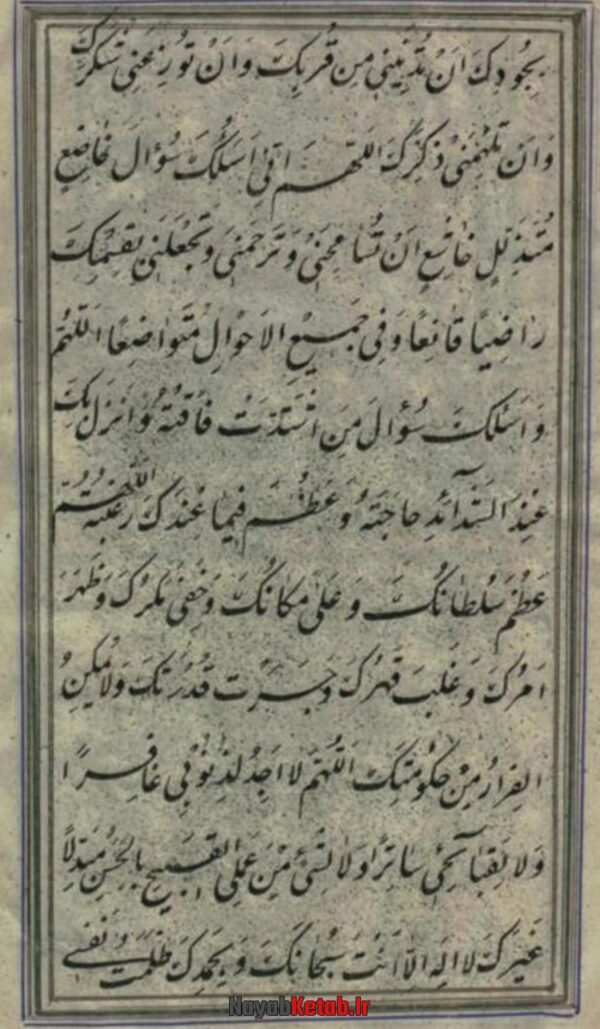 بِجُودِكَ اَنْ تُدْنِيَنِى مِنْ قُرْبِكَ وَاَنْ تُوزِعَنِى شُكْرَكَ
وَاَنْ تُلْهِمَنِى ذِكْرَكَ اَللّهُمَّ اِنِّى اَسْئَلُكَ سُؤالَ خاضِعٍ
مُتَذَلِّلٍ خاشِعٍ اَنْ تُسامِحَنِى وَتَرْحَمَنِى وَتَجْعَلَنِى بِقِسْمِكَ
راضِيًا قانِعًا وَفِى جَمِيعِ الاَحْوالِ مُتَواضِعًا اَللّهُمَّ
وَاَسْئَلُكَ سُؤالَ مَنِ اشْتَدَّتْ فاقَتُهُ وَاَنْزَلَ بِكَ
عِنْدَ الشَّدآئِدِ حاجَتَهُ وَعَظُمَ فِيما عِنْدَكَ رَغْبَتُهُ اَللّهُمَّ
عَظُمَ سُلْطانُكَ وَعَلى مَكانُكَ وَخَفِىَ مَكْرُكَ وَظَهَرَ
اَمْرُكَ وَغَلَبَ قَهْرُكَ وَجَرَتْ قُدْرَتُكَ وَلا يُمْكِنُ
الفِرارُ مِنْ حُكُومَتِكَ اَللّهُمَّ لا اَجِدُ لِذُنُوبِى غافِرًا
وَلا لِقَبآئِحِى ساتِرًا وَلا لِشَىْءٍ مِنْ عَمَلِىَ القَبِيحِ بِالحَسَنِ مُبَدِّلًا
غَيْرَكَ لا اِلهَ اِلاّ اَنْتَ سُبْحانَكَ وَبِحَمْدِكَ ظَلَمْتُ نَفْسِى
NayabKetab.ir